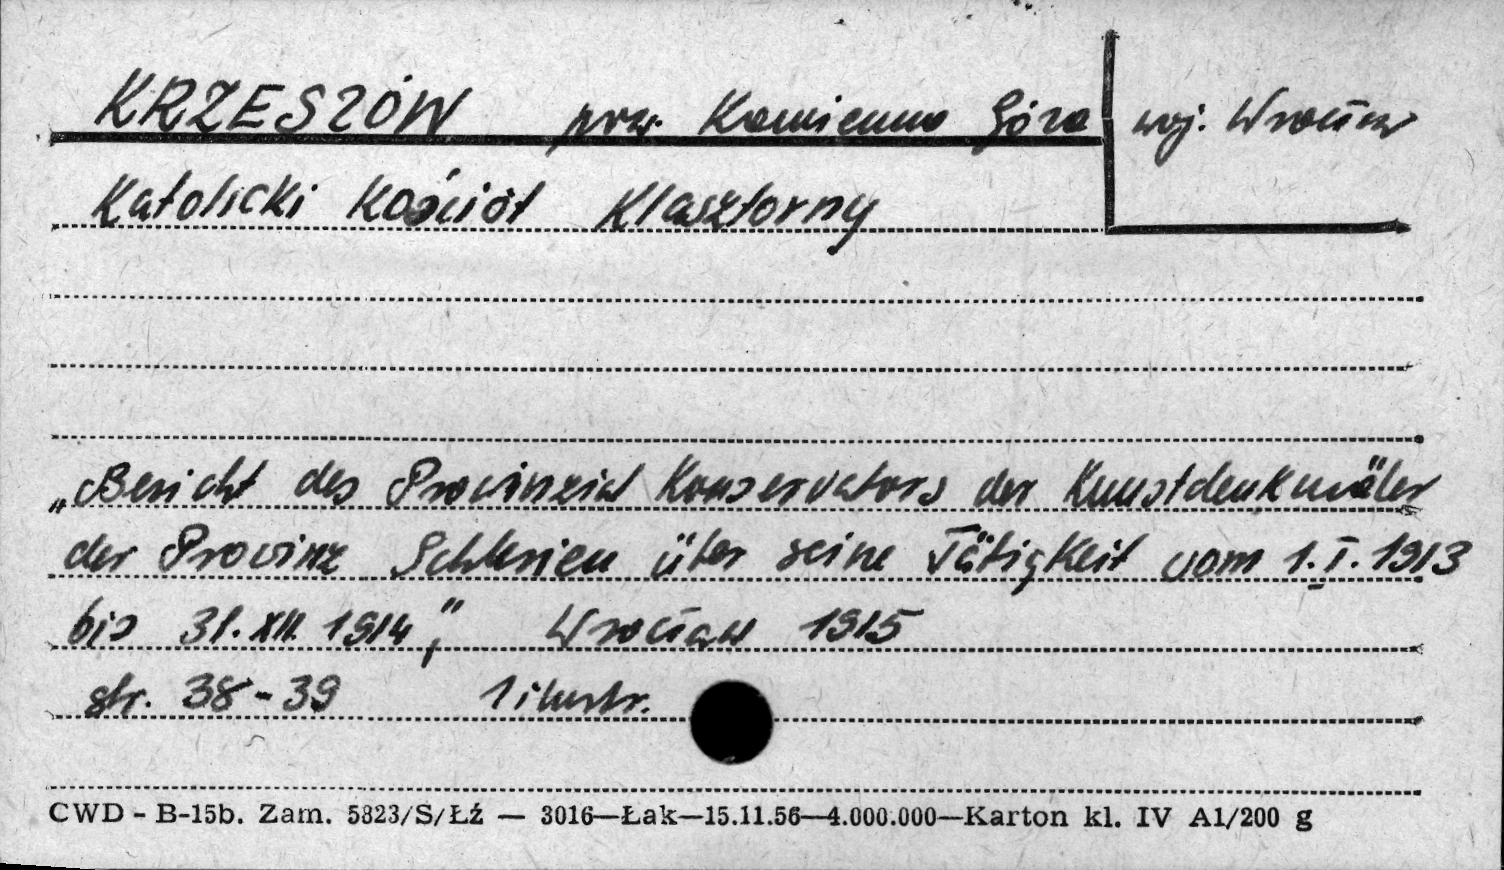 KRZESZÓW pow. Kamienna Góra woj. Wrocław
Katolicki Kościół Klasztorny
„Bericht des Provinzial Konservators der Kunstdenkmäler
der Provinz Schlesien über seine Tätigkeit vom 1.I.1913
bis 31.XII.1914", Wrocław 1915
str. 38-39 1 ilustr.
CWD - B-15b. Zam. 5823/S/Łź — 3016—Łak—15.11.56—4.000.000—Karton kl. IV A1/200 g